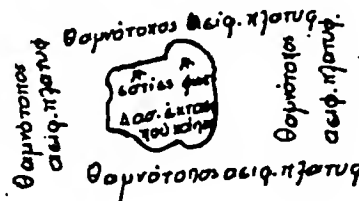 θαμνότοπος αειφ. πλατυφ.
θαμνότοπος
αειφ. πλατυφ.
εστίες φωτ
Δασ. έκταση
που κάηκε
θαμνότοπος
αειφ. πλατυφ.
θαμνότοπος αειφ. πλατυφ.